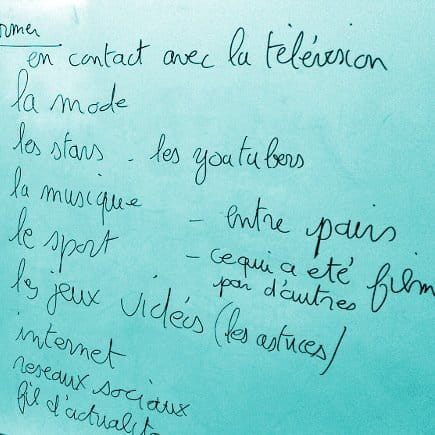 ormer
en contact avec la télévision
la mode
les stars - les youtubers
la musique
- entre pairs
le sport
- ce qui a été film
par d'autres
les jeux vidéos (les astuces)
internet
reseaux sociaux
fil d'actualit